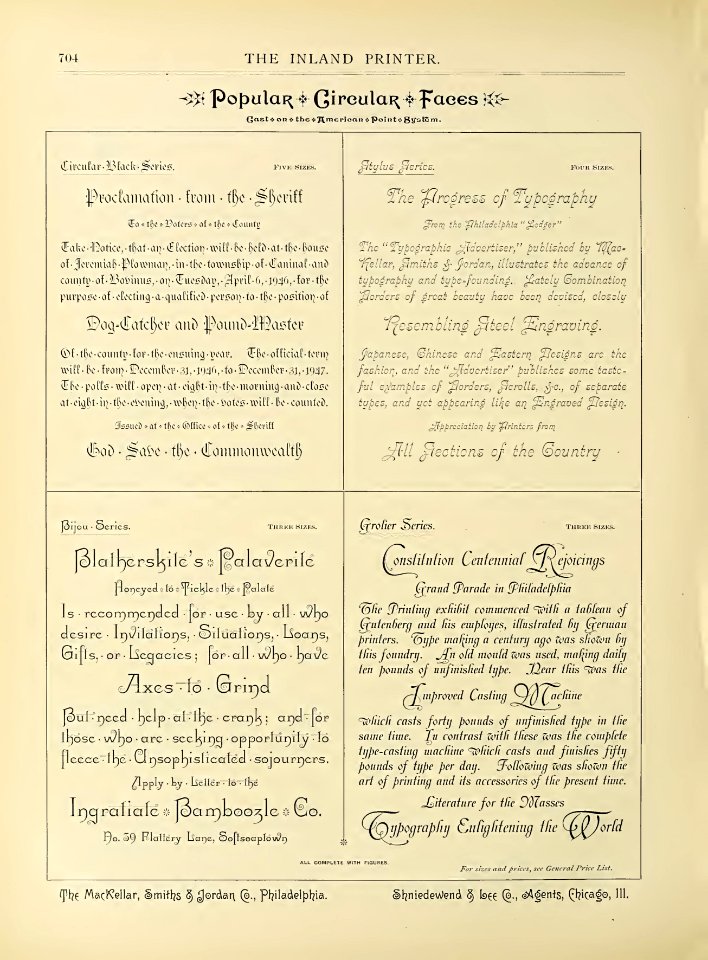 704
THE INLAND PRINTER.
Popular Circular Faces
Cast on the American Point System.
Circular·Black·Series.
FIVE SIZES.
Proclamation · from · the · Sheriff
To · the · Voters · of · the · County
Take·Notice,·that·an·Election·will·be·held·at·the·house
of·Jeremiah·Plowman,·in·the·township·of·Caninal·and
county·of·Bovinus,·on·Tuesday,·April·6,·1946,·for·the
purpose·of·electing·a·qualified·person·to·the·position·of
Dog-Catcher and Pound-Master
Of·the·county·for·the·ensuing·year. The·official·term
will·be·from·December·31,·1946,·to·December·31,·1947.
The·polls·will·open·at·eight·in·the·morning·and·close
at·eight·in·the·evening,·when·the·votes·will·be·counted.
Issued · at · the · Office · of · the · Sheriff
God · Save · the · Commonwealth
Stylus Series.
FOUR SIZES.
The Progress of Typography
From the Philadelphia "Ledger"
The "Typographic Advertiser," published by Mac-
Kellar, Smiths & Jordan, illustrates the advance of
typography and type-founding. Lately Combination
Borders of great beauty have been devised, closely
Resembling Steel Engraving.
Japanese, Chinese and Eastern Designs are the
fashion, and the "Advertiser" publishes some taste-
ful examples of Borders, Scrolls, &c., of separate
types, and yet appearing like an Engraved Design.
Appreciation by Printers from
All Sections of the Country
Bijou · Series.
THREE SIZES.
Blatherskite's Palaverite
Honeyed · to · Tickle · the · Palate
Is · recommended · for · use · by · all · who
desire · Invitations, · Situations, · Loans,
Gifts, · or · Legacies; for · all · who · have
Axes · to · Grind
But · need · help · at · the · crank; and · for
those · who · are · seeking · opportunity · to
fleece · the · Unsophisticated · sojourners.
Apply · by · Letter · to · the
Ingratiate Bamboozle Co.
No. 59 Flattery Lane, Softsoaptown
Grolier Series.
THREE SIZES.
Constitution Centennial Rejoicings
Grand Parade in Philadelphia
The Printing exhibit commenced with a tableau of
Gutenberg and his employes, illustrated by German
printers. Type making a century ago was shown by
this foundry. An old mould was used, making daily
ten pounds of unfinished type. Near this was the
Improved Casting Machine
which casts forty pounds of unfinished type in the
same time. In contrast with these was the complete
type-casting machine which casts and finishes fifty
pounds of type per day. Following was shown the
art of printing and its accessories of the present time.
Literature for the Masses
Typography Enlightening the World
ALL COMPLETE WITH FIGURES.
For sizes and prices, see General Price List.
The MacKellar, Smiths & Jordan Co., Philadelphia.
Shniedewend & Lee Co., Agents, Chicago, Ill.